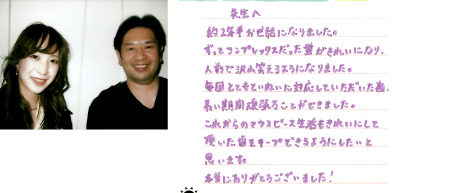 先生へ
約2年半お世話になりました。
ずっとコンプレックスだった歯がきれいになり、
人前で沢山笑えるようになりました。
毎回とてもていねいに対応していただいた為、
長い期間頑張ることができました。
これからのマウスピース生活もきれいにして
頂いた歯をキープできるようにしたいと
思います。
本当にありがとうございました!